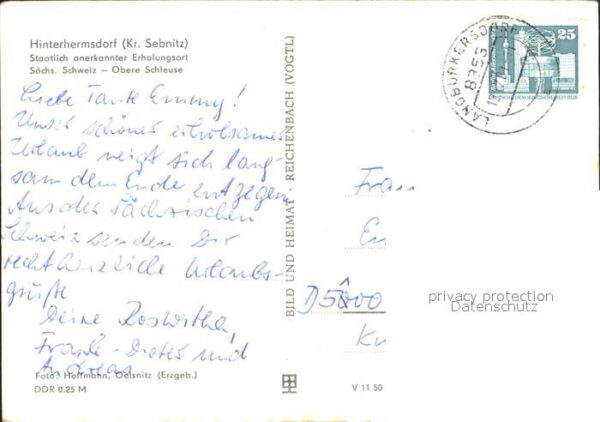 Hinterhermsdorf (Kr. Sebnitz)
Staatlich anerkannter Erholungsort
Sächs. Schweiz – Obere Schleuse
Liebe Tante Emmy!
Unser schöner erholsamer
Urlaub neigt sich lang-
sam dem Ende entgegen
Aus der Sächsischen
Schweiz senden Dir
recht herzliche Urlaubs-
grüße
Deine Roswitha,
Frank-Dieter und
Andreas
Foto: Hoffmann, Oelsnitz (Erzgeb.)
DDR 0.25 M
BILD UND HEIMAT REICHENBACH (VOGTL)
V 11 50
LANGBURKERSDORF
8356
25
DEUTSCHE DEMOKRATISCHE REPUBLIK
Frau
D5000
privacy protection
Datenschutz